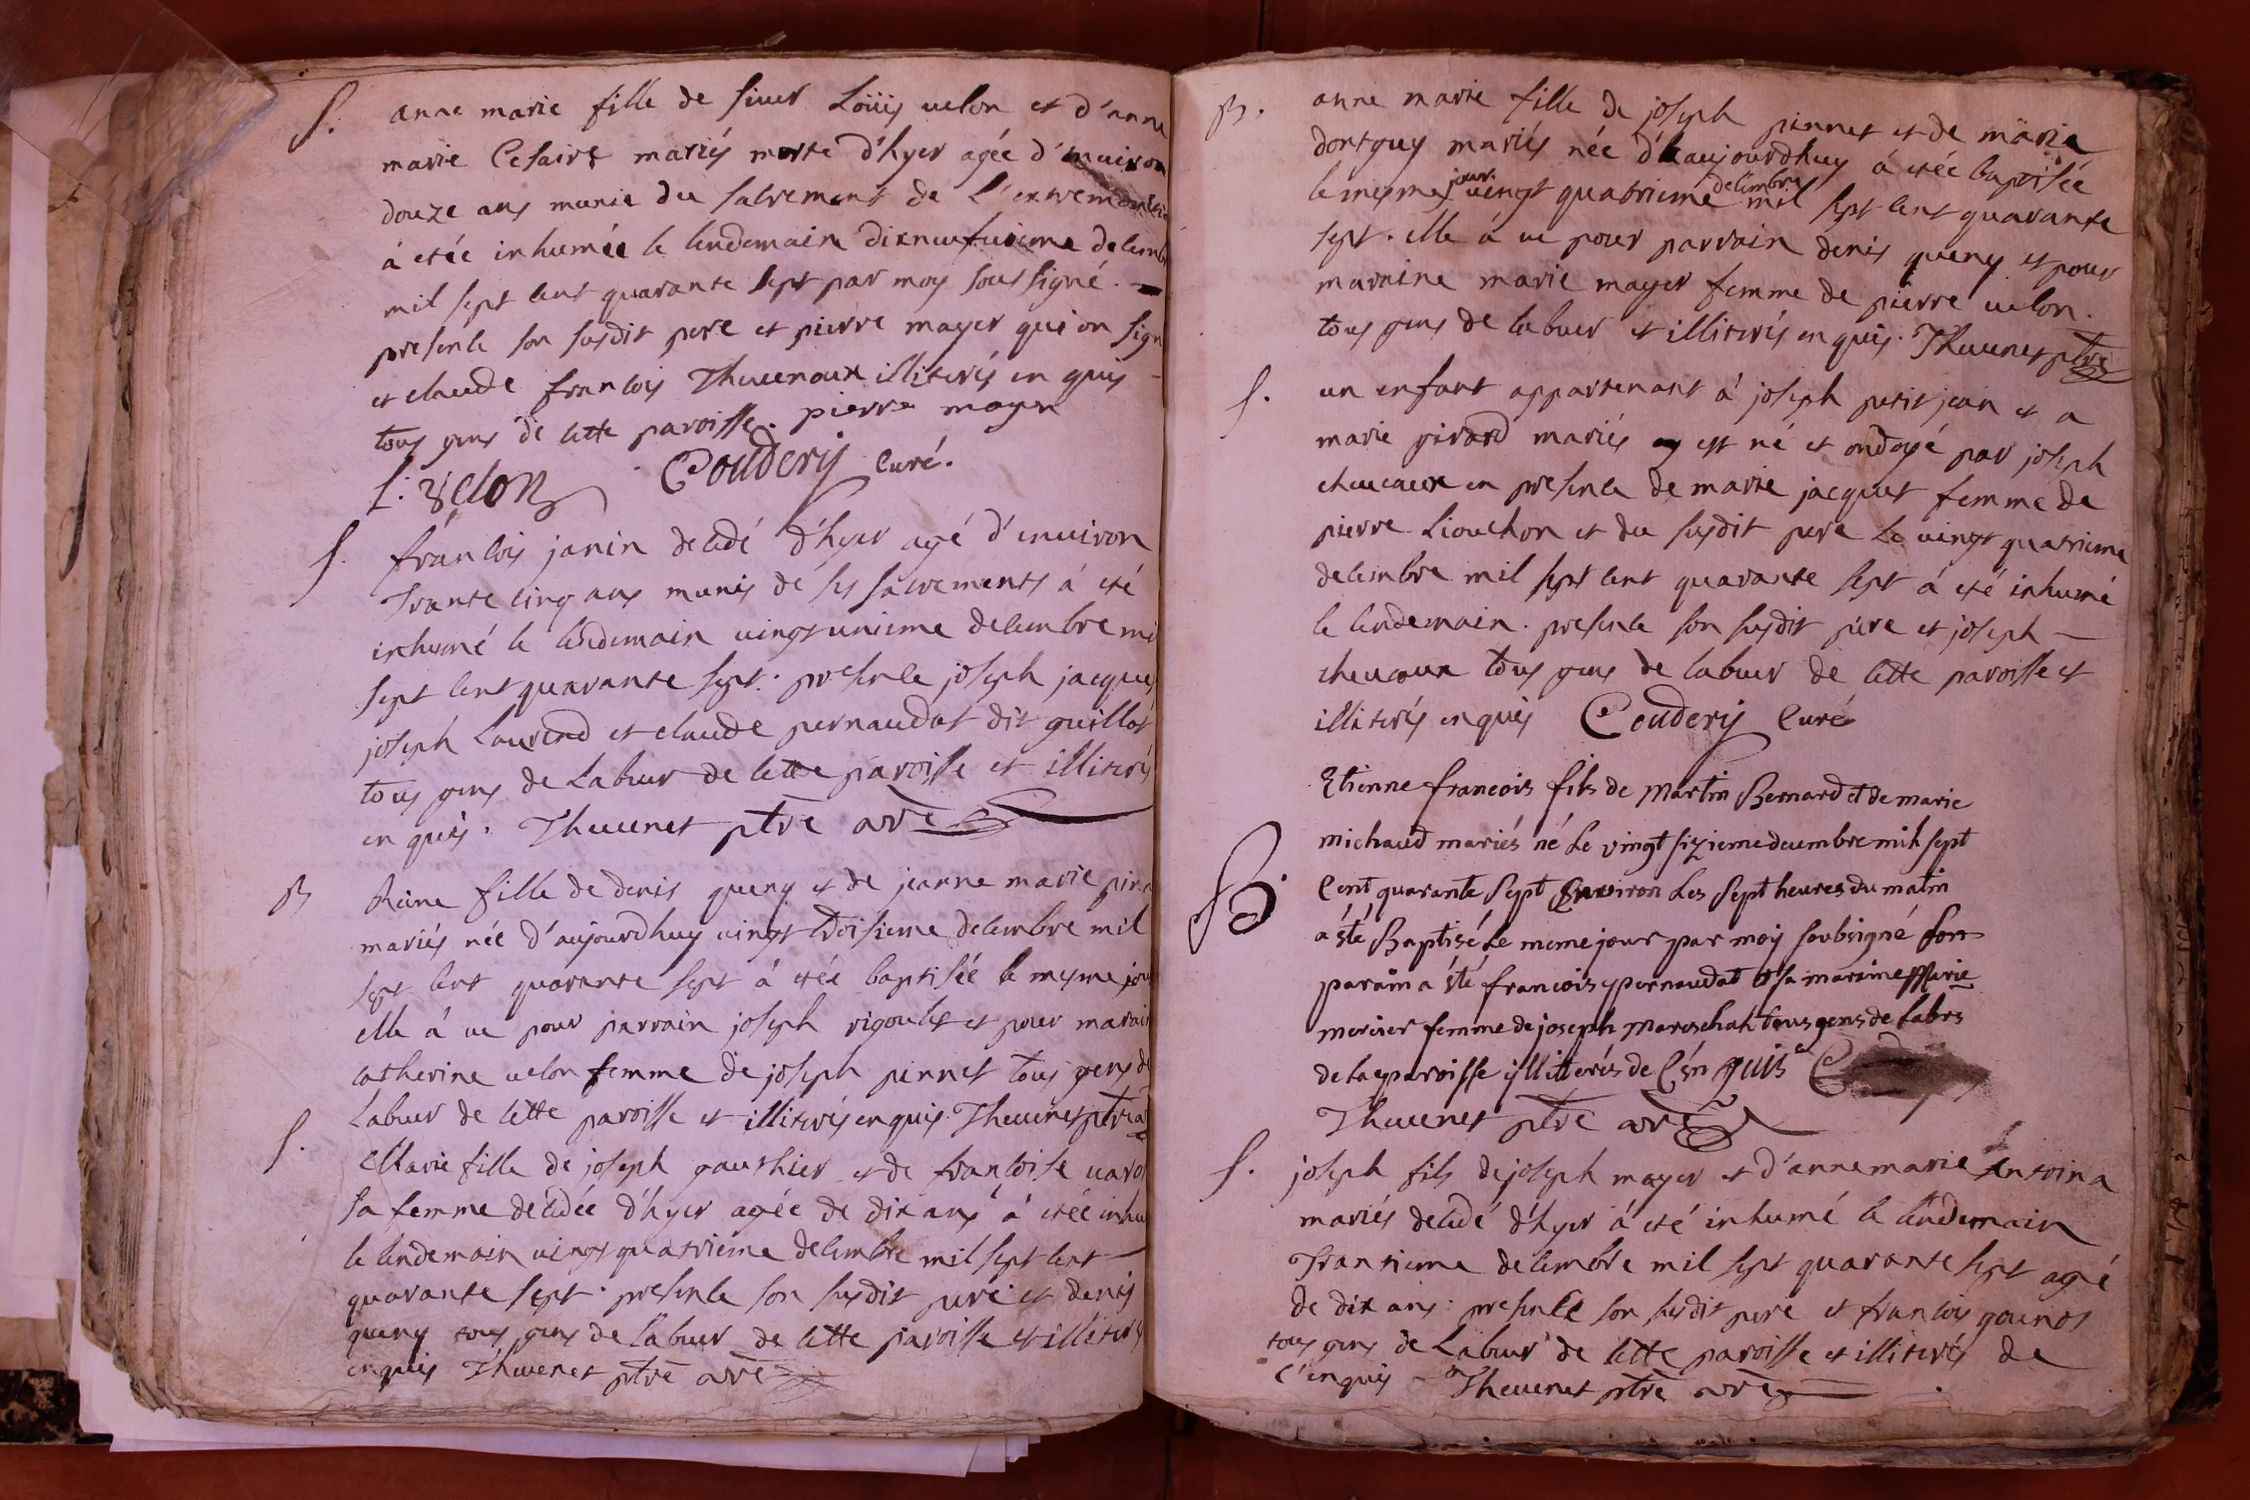 S. anne marie fille de sieur Loüis velon et d'anne
marie Cesaire mariés morte d'hyer agée d'environ
douze ans munie du sacrement de l'extremonctio
á etée inhumée le lendemain dixneufuieme decemb
mil sept cent quarante sept par moy sous signé.
presence son susdit pere et pierre mayer qui on sign
et claude francois Thevenoux illiterés en quis
tous gens de cette paroisse. pierre mayer
L. velon Couderij curé.
S. francois janin decedé d'hyer agé d'environ
trante cinq ans munis de ses sacrements á eté
inhumé le lendemain vingt unieme decembre mi
sept cent quarante sept. presence joseph jacques
joseph Laurend et claude pernaudat dit guillot
tous gens de Labeur de cette paroisse et illiterés
en quis. Thevenet ptre
B Reine fille de denis queny et de jeanne marie
mariés née d'aujourdhuy vingt troisieme decembre mil
sept cent quarante sept á etée baptisée le mesme jou
elle á ue pour parrain joseph rigoulet et pour marain
catherine velon femme de joseph pernet tous gens de
Labeur de cette paroisse et illiterés enquis. Thevenet ptre
S. Marie fille de joseph gauthier et de francoise
sa femme decedée d'hyer agée de dix ans á etée inhu
le lendemain vingt quatrieme decembre mil sept cent
quarante sept. presence son susdit pere et denis
queny tous gens de labeur de cette paroisse et illiterés
enquis Thevenet ptre
B. anne marie fille de joseph pernet et de marie
mariés née d'aujourdhuy á etée baptisée
le mesme jour vingt quatrieme decembre mil sept cent quarante
sept. elle á ue pour parrain denis queny et pour
maraine marie mayer femme de pierre velon.
tous gens de labeur et illiterés en quis. Thevenet ptre
S. un enfant appartenant á joseph petit jean et a
marie girard mariés est né et ondoyé par joseph
chevaux en presence de marie jacquet femme de
pierre Liouchon et du susdit pere Le vingt quatrieme
decembre mil sept cent quarante sept á eté inhumé
le lendemain. presence son susdit pere et joseph
chevaux tous gens de labeur de cette paroisse et
illiterés enquis Couderij Curé
Etienne francois fils de Martin Bernard et de marie
michaud mariés né Le vingt sizieme decembre mil sept
B. Cent quarante Sept Environ Les Sept heures du matin
a été Baptisé Le meme jour par moij soubsigné son
parain a été francois pernaudat et sa maraine Marie
mercier femme de joseph Mareschal tous gens de Labrs
de la paroisse ijlliterés de Enquis
Thevenet ptre
S. joseph fils de joseph mayer et d'anne marie Antoina
mariés decedé d'hyer á eté inhumé le lendemain
Trantieme decembre mil sept quarante sept agé
de dix ans: presence son susdit pere et francois gounot
tous gens de Labeur de cette paroisse et illiterés de
c'enquis Thevenet ptre